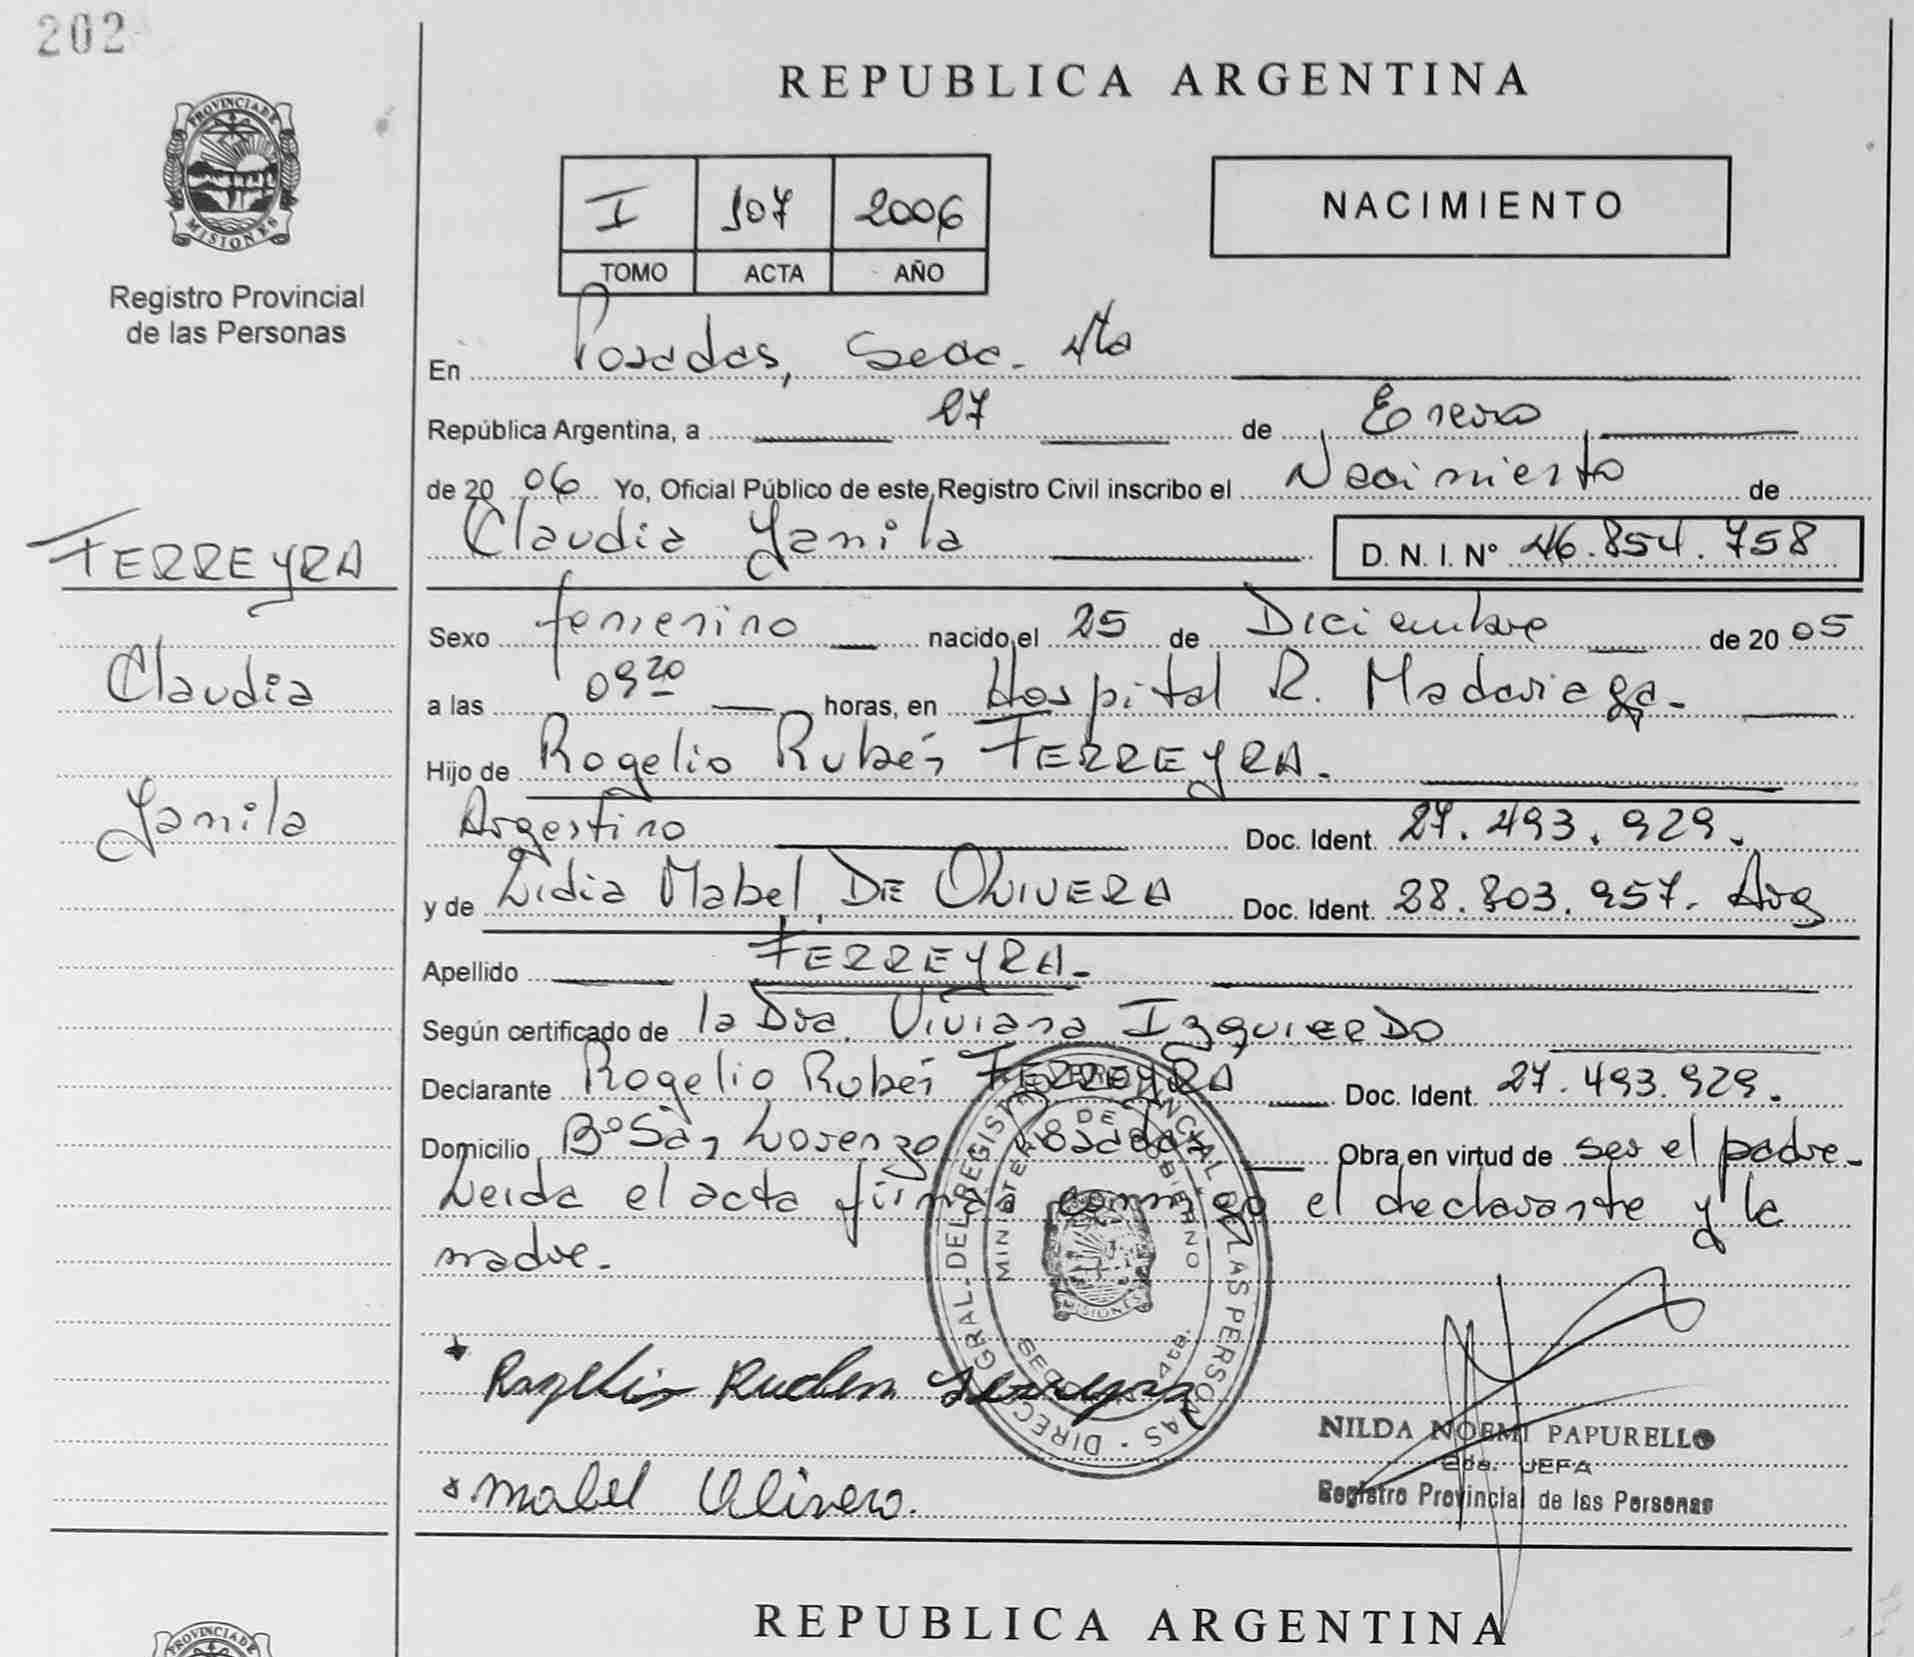 202
PROVINCIA DE
MISIONES
Registro Provincial
de las Personas
REPUBLICA ARGENTINA
I 107 2006
TOMO ACTA AÑO
NACIMIENTO
En Posadas, Secc. 4ta
República Argentina, a 27 de Enero
de 2006 Yo, Oficial Público de este Registro Civil inscribo el Nacimiento de
Claudia Yamila D. N. I. Nº 46.854.758
FERREYRA
Claudia
Yamila
Sexo femenino nacido el 25 de Diciembre de 2005
a las 09 20 horas, en Hospital R. Madariaga.
Hijo de Rogelio Rubén FERREYRA.
Argentino Doc. Ident. 27.493.929.
y de Lidia Mabel DE OLIVERA Doc. Ident. 28.803.957. Arg
Apellido FERREYRA.
Según certificado de la Dra. Viviana IZQUIERDO
Declarante Rogelio Rubén FERREYRA Doc. Ident. 27.493.929.
Domicilio Bº San Lorenzo Posadas Obra en virtud de ser el padre.
Leida el acta firma conmigo el declarante y la
madre.
DIRECC GRAL. DEL REGISTRO PROVINCIAL DE LAS PERSONAS
MINISTERIO DE GOBIERNO
MISIONES
4ta.
Rogelio Ruben Ferreyra
Mabel Olivera.
NILDA NOEMI PAPURELLO
2da. JEFA
Registro Provincial de las Personas
REPUBLICA ARGENTINA
PROVINCIA DE